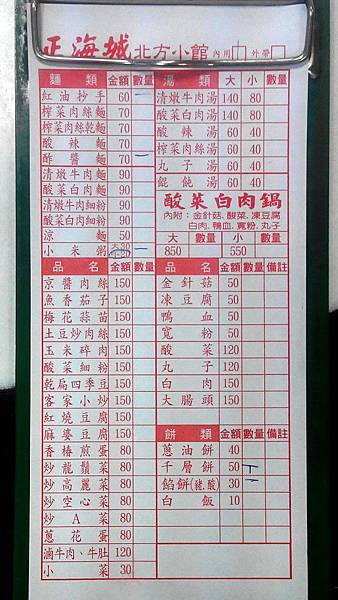 正海城北方小館 內用 外帶
麵類 金額 數量
紅油抄手 60 一
榨菜肉絲麵 70
榨菜肉絲乾麵 70
酸辣麵 70
酢醬麵 70 一
清燉牛肉麵 90
酸菜白肉麵 90
清燉牛肉細粉 90
酸菜白肉細粉 90
涼麵 50
小米粥 30 一
湯類 大 小 數量
清燉牛肉湯 140 80
酸菜白肉湯 140 80
酸辣湯 60 40
榨菜肉絲湯 60 40
丸子湯 60 40
餛飩湯 60 40
酸菜白肉鍋
內附：金針菇、酸菜、凍豆腐
白肉、鴨血、寬粉、丸子
大 數量 小 數量
850 550
品名 金額 數量
京醬肉絲 150
魚香茄子 150
梅花蒜苗 150
土豆炒肉絲 150
玉米碎肉 150
酸菜細粉 150
乾扁四季豆 150
客家小炒 150
紅燒豆腐 150
麻婆豆腐 150
香椿煎蛋 80
炒龍鬚菜 80
炒高麗菜 80
炒空心菜 80
炒A菜 80
蔥花蛋 80
滷牛肉、牛肚 120
小菜 30
品名 金額 數量 備註
金針菇 50
凍豆腐 50
鴨血 50
寬粉 50
酸菜 120
丸子 120
白肉 150
大腸頭 150
餅類 金額 數量 備註
蔥油餅 40
千層餅 50 丅
餡餅(豬,酸) 30
白飯 10